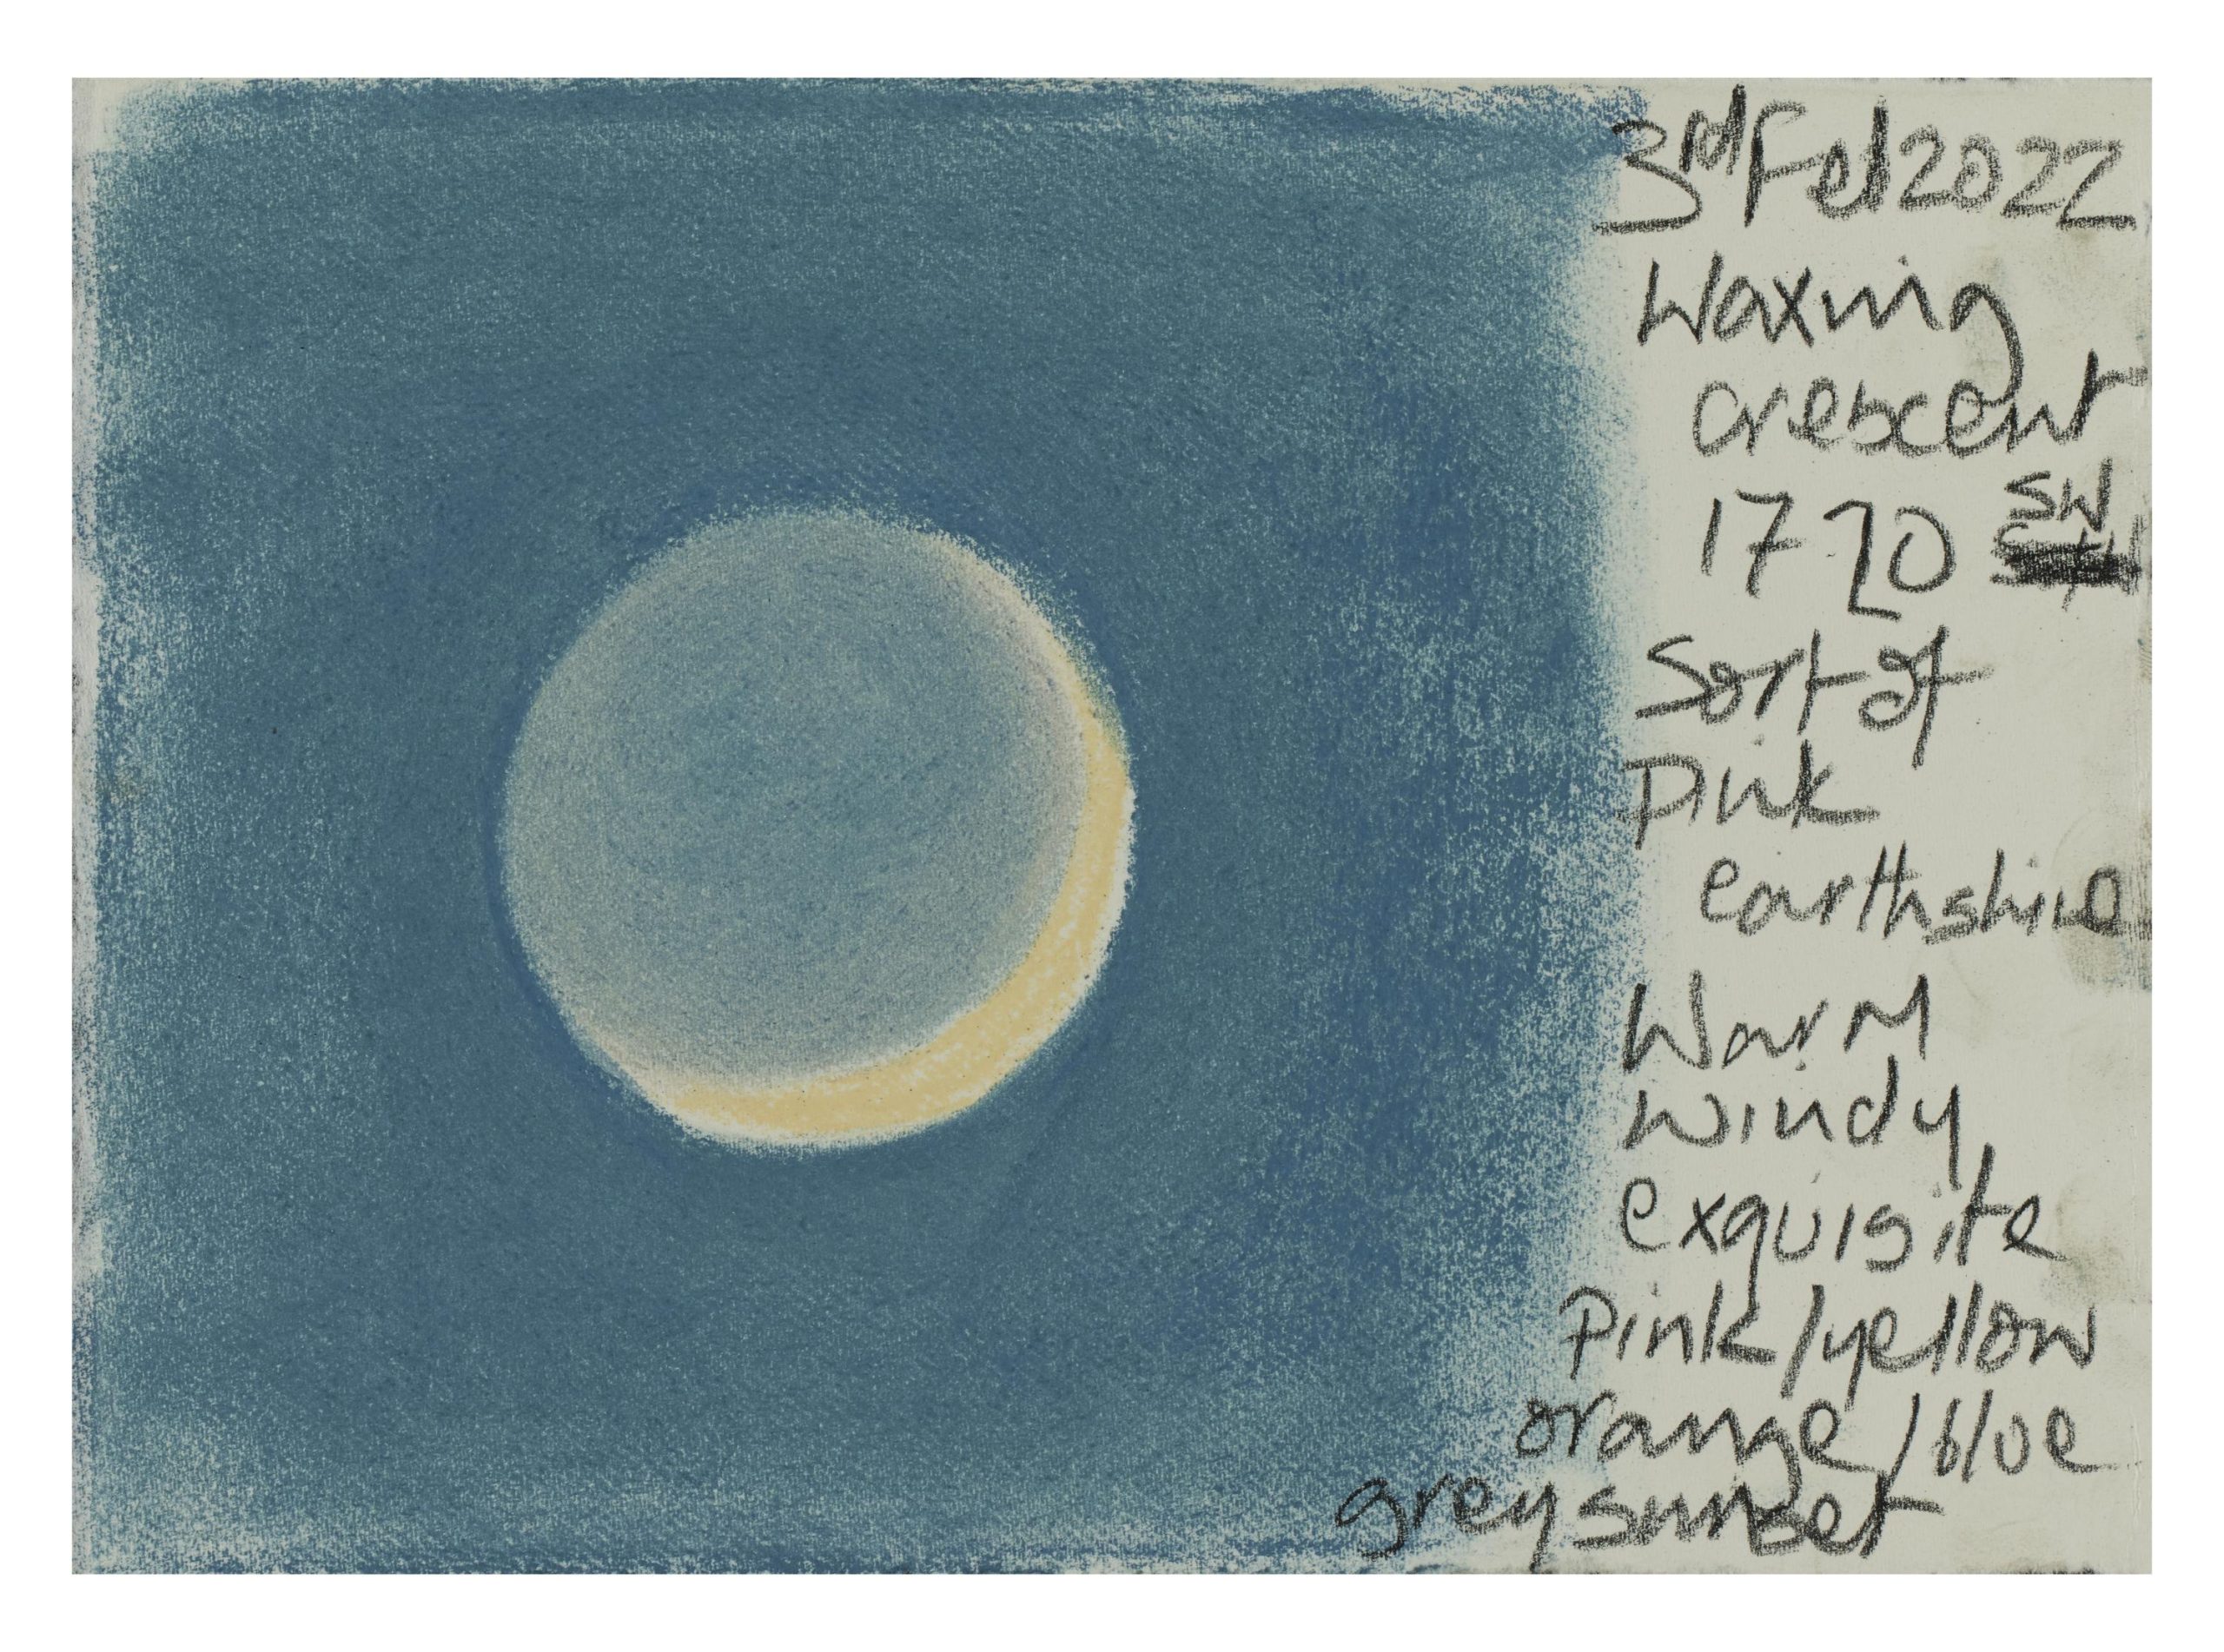 3rd Feb 2022
Waxing
crescent
1720 SW
Sort of
Pink
earthshine
Warm
windy
exquisite
pink/yellow
orange/blue
grey sunset